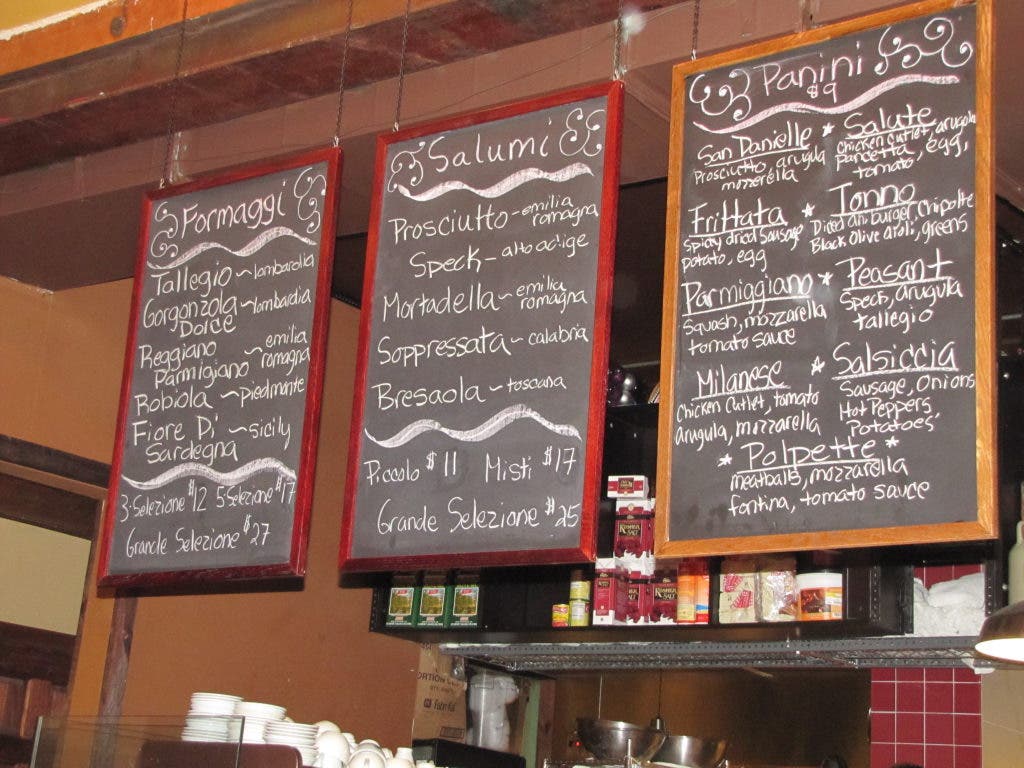 Formaggi
Tallegio ~ lombardia
Gorgonzola ~ lombardia
Dolce
Reggiano
Parmigiano ~ emilia romagna
Robiola ~ Piedmonte
Fiore Di ~ Sicily
Sardegna
3-Selezione $12 5 Selezione $17
Grande Selezione $27
Salumi
Prosciutto ~ emilia romagna
Speck - alto adige
Mortadella ~ emilia romagna
Soppressata ~ calabria
Bresaola ~ toscana
Piccolo $11 Misti $17
Grande Selezione $25
Panini
$9
San Danielle *
Prosciutto, arugula
mozzerella
Salute
Chicken Cutlet, arugola
pancetta, egg,
tomato
Frittata *
Spicy dried Sausage
potato, egg
Tonno
Black Olive aioli, greens
Parmiggiano *
Squash, mozzarella
tomato sauce
Peasant
Speck, arugula
tallegio
Milanese *
Chicken Cutlet, tomato
arugula, mozzarella
Salsiccia
Sausage, Onions
Hot Peppers,
Potatoes,
* Polpette *
meatballs, mozzarella
fontina, tomato sauce
KOSHER SALT
KOSHER SALT